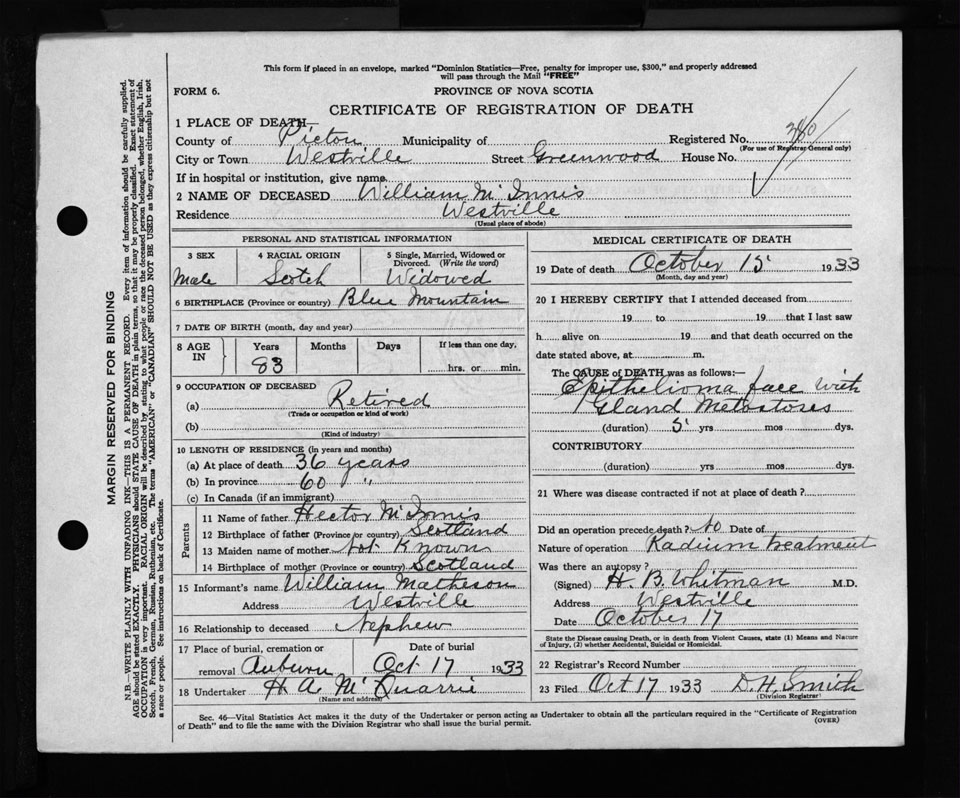 This form if placed in an envelope, marked "Dominion Statistics—Free, penalty for improper use, $300," and properly addressed
will pass through the Mail "FREE"
FORM 6.
PROVINCE OF NOVA SCOTIA
CERTIFICATE OF REGISTRATION OF DEATH
1 PLACE OF DEATH—
County of Pictou Municipality of Registered No. 380
(For use of Registrar General only)
City or Town Westville Street Greenwood House No.
If in hospital or institution, give name
2 NAME OF DECEASED William McInnis
Residence Westville
(Usual place of abode)
PERSONAL AND STATISTICAL INFORMATION
3 SEX 4 RACIAL ORIGIN 5 Single, Married, Widowed or
Divorced. (Write the word)
Male Scotch Widowed
6 BIRTHPLACE (Province or country) Blue Mountain
7 DATE OF BIRTH (month, day and year)
8 AGE IN Years Months Days If less than one day,
83 hrs. or min.
9 OCCUPATION OF DECEASED
(a) Retired
(Trade or occupation or kind of work)
(b)
(Kind of industry)
10 LENGTH OF RESIDENCE (in years and months)
(a) At place of death 36 years
(b) In province 60 "
(c) In Canada (if an immigrant)
Parents
11 Name of father Hector McInnis
12 Birthplace of father (Province or country) Scotland
13 Maiden name of mother Not Known
14 Birthplace of mother (Province or country) Scotland
15 Informant's name William Matheson
Address Westville
16 Relationship to deceased Nephew
17 Place of burial, cremation or Date of burial
removal Auburn Oct 17 1933
18 Undertaker H A McQuarrie
(Name and address)
MEDICAL CERTIFICATE OF DEATH
19 Date of death October 15 1933
(Month, day and year)
20 I HEREBY CERTIFY that I attended deceased from
19 to 19 that I last saw
h alive on 19 and that death occurred on the
date stated above, at m.
The CAUSE of DEATH was as follows:—
Epithelioma face with
Gland Metastoses
(duration) 5 yrs mos dys.
CONTRIBUTORY
(duration) yrs mos dys.
21 Where was disease contracted if not at place of death?
Did an operation precede death? No Date of
Nature of operation Radium treatment
Was there an autopsy?
(Signed) H. B. Whitman M.D.
Address Westville
Date October 17
State the Disease causing Death, or in death from Violent Causes, state (1) Means and Nature
of Injury, (2) whether Accidental, Suicidal or Homicidal.
22 Registrar's Record Number
23 Filed Oct 17 1933 D. H. Smith
(Division Registrar)
Sec. 46—Vital Statistics Act makes it the duty of the Undertaker or person acting as Undertaker to obtain all the particulars required in the "Certificate of Registration
of Death" and to file the same with the Division Registrar who shall issue the burial permit.
(OVER)
MARGIN RESERVED FOR BINDING
N.B.—WRITE PLAINLY WITH UNFADING INK—THIS IS A PERMANENT RECORD. Every item of information should be carefully supplied.
AGE should be stated EXACTLY. PHYSICIANS should STATE CAUSE OF DEATH in plain terms, so that it may be properly classified. Exact statement of
OCCUPATION is very important. RACIAL ORIGIN will be described by stating to what people or race the deceased person belonged, whether English, Irish,
Scotch, French, German, Russian, Ruthenian, etc. The terms "AMERICAN" or "CANADIAN" SHOULD NOT BE USED as they express citizenship but not
a race or people. See instructions on back of Certificate.